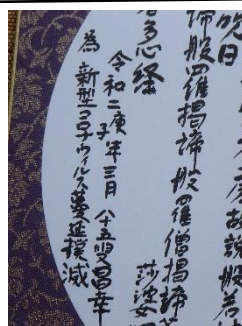 呪曰
故説般若
諦般羅揭諦般羅僧揭諦菩
莎婆
若心経
令和二庚子年三月 八十五叟昌幸
為 新型コロナウィルス蔓延撲滅